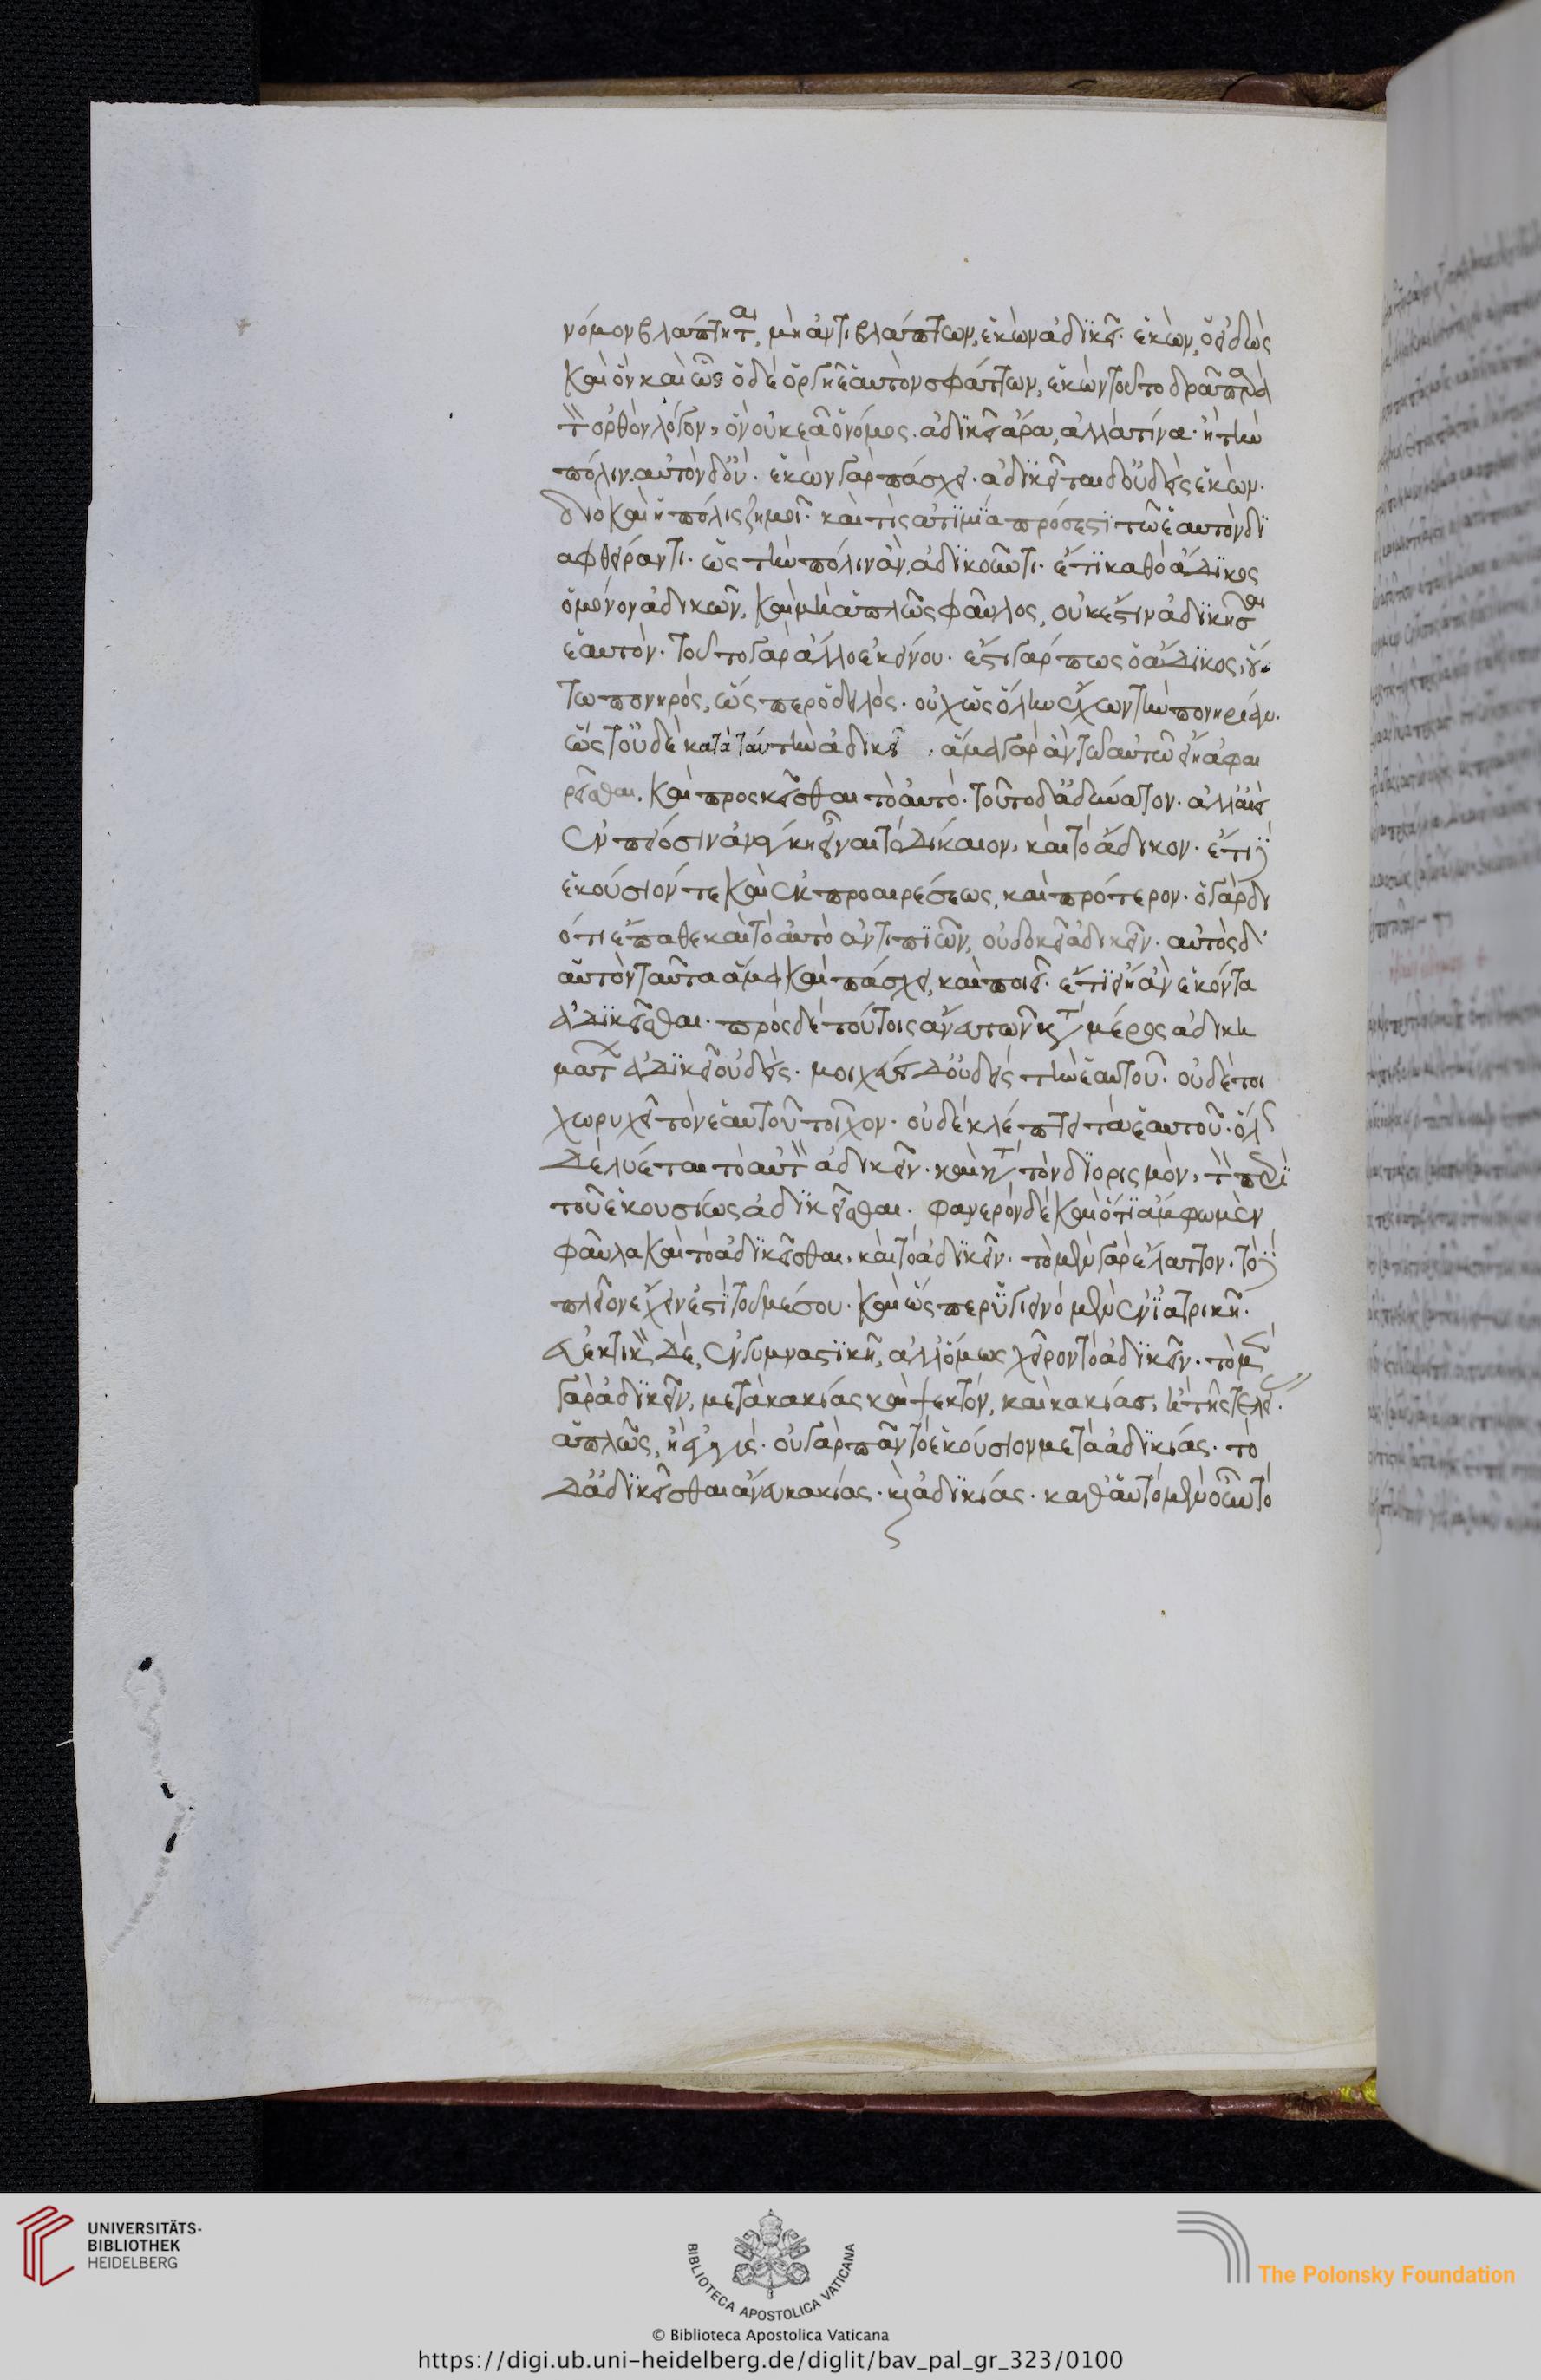 νόμον βλάπτηται, μὴ ἀντιβλάπτων, ἑκὼν ἀδικεῖ· ἑκὼν, ὁ εἰδὼς
καὶ ὃν καὶ ὧς ὁ δὲ ὀργῆ ἑαυτὸν σφάττων, ἑκὼν τοῦτο δρᾶ παρὰ
τὸν ὀρθὸν λόγον, ὃν οὐκ ἐᾶ ὁ νόμος. ἀδικεῖ ἄρα, ἀλλὰ τίνα· ἢ τὴν
πόλιν. αὐτὸν δ' οὔ. ἑκὼν γὰρ πάσχει· ἀδικεῖται δ' οὐδεὶς ἑκών.
διὸ καὶ ἡ πόλις ζημιοῖ· καὶ τὶς ἀτιμία πρόσεστι τῶ ἑαυτὸν δι
αφθείραντι· ὡς τὴν πόλιν ἂν, ἀδικοῦντι. ἔτι καθὸ ἄδικος
ὁ μόνον ἀδικῶν, καὶ μὴ ἁπλῶς φαῦλος, οὐκ ἔστιν ἀδικῆσαι
ἑαυτόν. τοῦτο γὰρ ἄλλο ἐκείνου. ἔστι γάρ πως ὁ ἄδικος, οὕ
τω πονηρὸς, ὥσπερ ὁ δειλός. οὐχ ὡς ὅλην ἔχων τὴν πονηρίαν.
ὥστ' οὐδὲ κατὰ ταύτην ἀδικεῖ. ἅμα γὰρ ἂν τῶ αὐτῶ εἴη ἀφαι
ρεῖσθαι, καὶ προσκεῖσθαι τὸ αὐτό. τοῦτο δ' ἀδύνατον. ἀλλ' ἀεὶ
ἐν πλείοσιν ἀνάγκη εἶναι τὸ δίκαιον, καὶ τὸ ἄδικον. ἔτι δὲ
ἑκούσιόν τε καὶ ἐκ προαιρέσεως, καὶ πρότερον. ὁ γὰρ δι
ότι ἔπαθε καὶ τὸ αὐτὸ ἀντιποιῶν, οὐ δοκεῖ ἀδικεῖν. αὐτὸς δ'
αὑτὸν ταῦτα ἅμα καὶ πάσχει, καὶ ποιεῖ. ἔτι εἴη ἂν ἑκόντα
ἀδικεῖσθαι. πρὸς δὲ τούτοις ἄνευ τῶν κατὰ μέρος ἀδικη
μάτων ἀδικεῖ οὐδείς. μοιχεύει δ' οὐδεὶς τὴν ἑαυτοῦ. οὐδὲ τοι
χωρυχεῖ τὸν ἑαυτοῦ τοῖχον. οὐδὲ κλέπτει τὰ ἑαυτοῦ. ὅλως
δὲ λύεται τὸ αὑτὸν ἀδικεῖν. καὶ κατὰ τὸν διορισμὸν, τὸν περὶ
τοῦ ἑκουσίως ἀδικεῖσθαι. φανερὸν δὲ καὶ ὅτι ἄμφω μὲν
φαῦλα καὶ τὸ ἀδικεῖσθαι, καὶ τὸ ἀδικεῖν. τὸ μὲν γὰρ ἔλαττον. τὸ δὲ
πλεῖον ἔχειν ἐστὶ τοῦ μέσου. καὶ ὥσπερ ὑγιεινὸν μὲν ἐν ἰατρικῆ.
εὐεκτικὸν δὲ, ἐν γυμναστικῆ, ἀλλ' ὅμως χεῖρον τὸ ἀδικεῖν. τὸ μὲν
γὰρ ἀδικεῖν, μετὰ κακίας καὶ ψεκτόν, καὶ κακίας, ἢ τῆς τελείας
ἁπλῶς, ἢ ἐγγύς. οὐ γὰρ πᾶν τὸ ἑκούσιον μετὰ ἀδικίας. τὸ
δ' ἀδικεῖσθαι ἄνευ κακίας. καὶ ἀδικίας. καθ' αὑτὸ μὲν οὖν τὸ
UNIVERSITÄTS-
BIBLIOTHEK
HEIDELBERG
BIBLIOTECA APOSTOLICA VATICANA
The Polonsky Foundation
© Biblioteca Apostolica Vaticana
https://digi.ub.uni-heidelberg.de/diglit/bav_pal_gr_323/0100